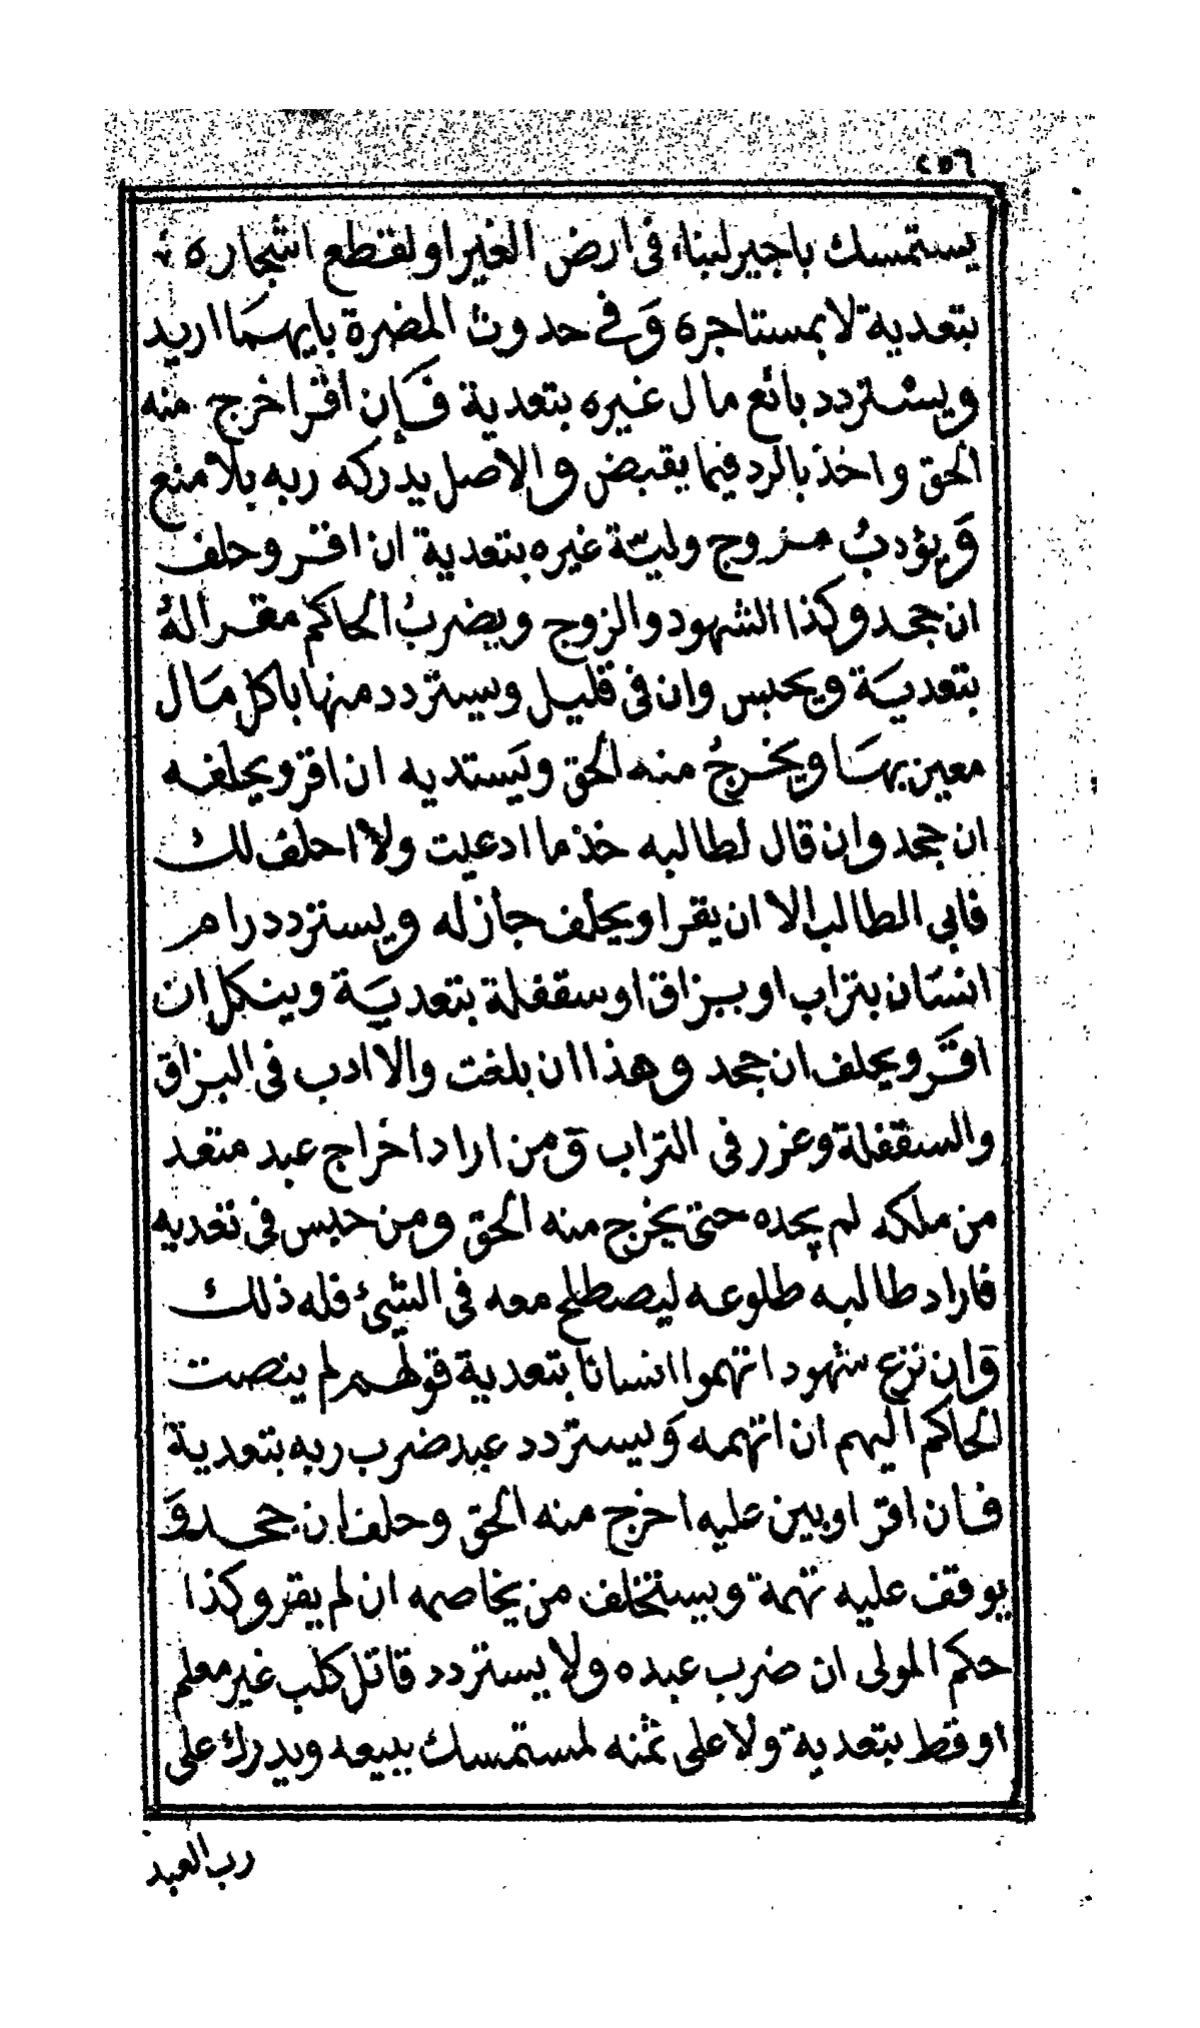 ٢٥٦
يستمسك باجير لبناء فى ارض الغير او لقطع اشجاره
بتعدية لا بمستاجره وَفي حدوث المضرة بايهمَا اريد
ويسترددبائع مال غيره بتعدية فَإن اقرا خرج منه
الحق واخذ بالرد فيما يقبض والاصل يدركه ربه بلا منع
وَيؤدبُ مزوج وليّة غيره بتعدية ان اقر وحلف
ان جحد وكذا الشهود والزوج ويضربُ الحاكم مقرا لهُ
بتعديَة ويحبس وان فى قليل ويستردد منها باكل مَال
معين بهَا ويخرجُ منه الحق ويَستديه ان اقر ويحلفه
ان جحد وان قال لطالبه خذ ما ادعيت ولا احلف لك
فابى الطالب الا ان يقر او يحلف جاز له ويستردد رام
انسَان بتراب او ببزاق او سقفلة بتعديَة وينكل ان
اقَر ويحلف ان جحد وهذا ان بلغت والا ادب فى البزاق
والسقفلة وعزر فى التراب وَمن اراد اخراج عبد متعد
من ملكه لم يجده حتى يخرج منه الحق ومن حبس فى تعديه
فاراد طالبه طلوعه ليصطلح معه فى الشئ فله ذلك
وَان نزع شهود اتهموا انسانا بتعدية قولهم لم ينصت
الحاكم اليهم ان اتهمه وَيستردد عبد ضرب ربه بتعدية
فان اقر او بين عليه اخرج منه الحق وحلف ان جحد وَ
يوقف عليه تهمة ويستخلف من يخاصمه ان لم يقر وكذا
حكم المولى ان ضرب عبده ولا يستردد قاتل كلب غير معلم
او قط بتعدية ولا على ثمنه لمستمسك ببيعه ويدرك على
رب العبد